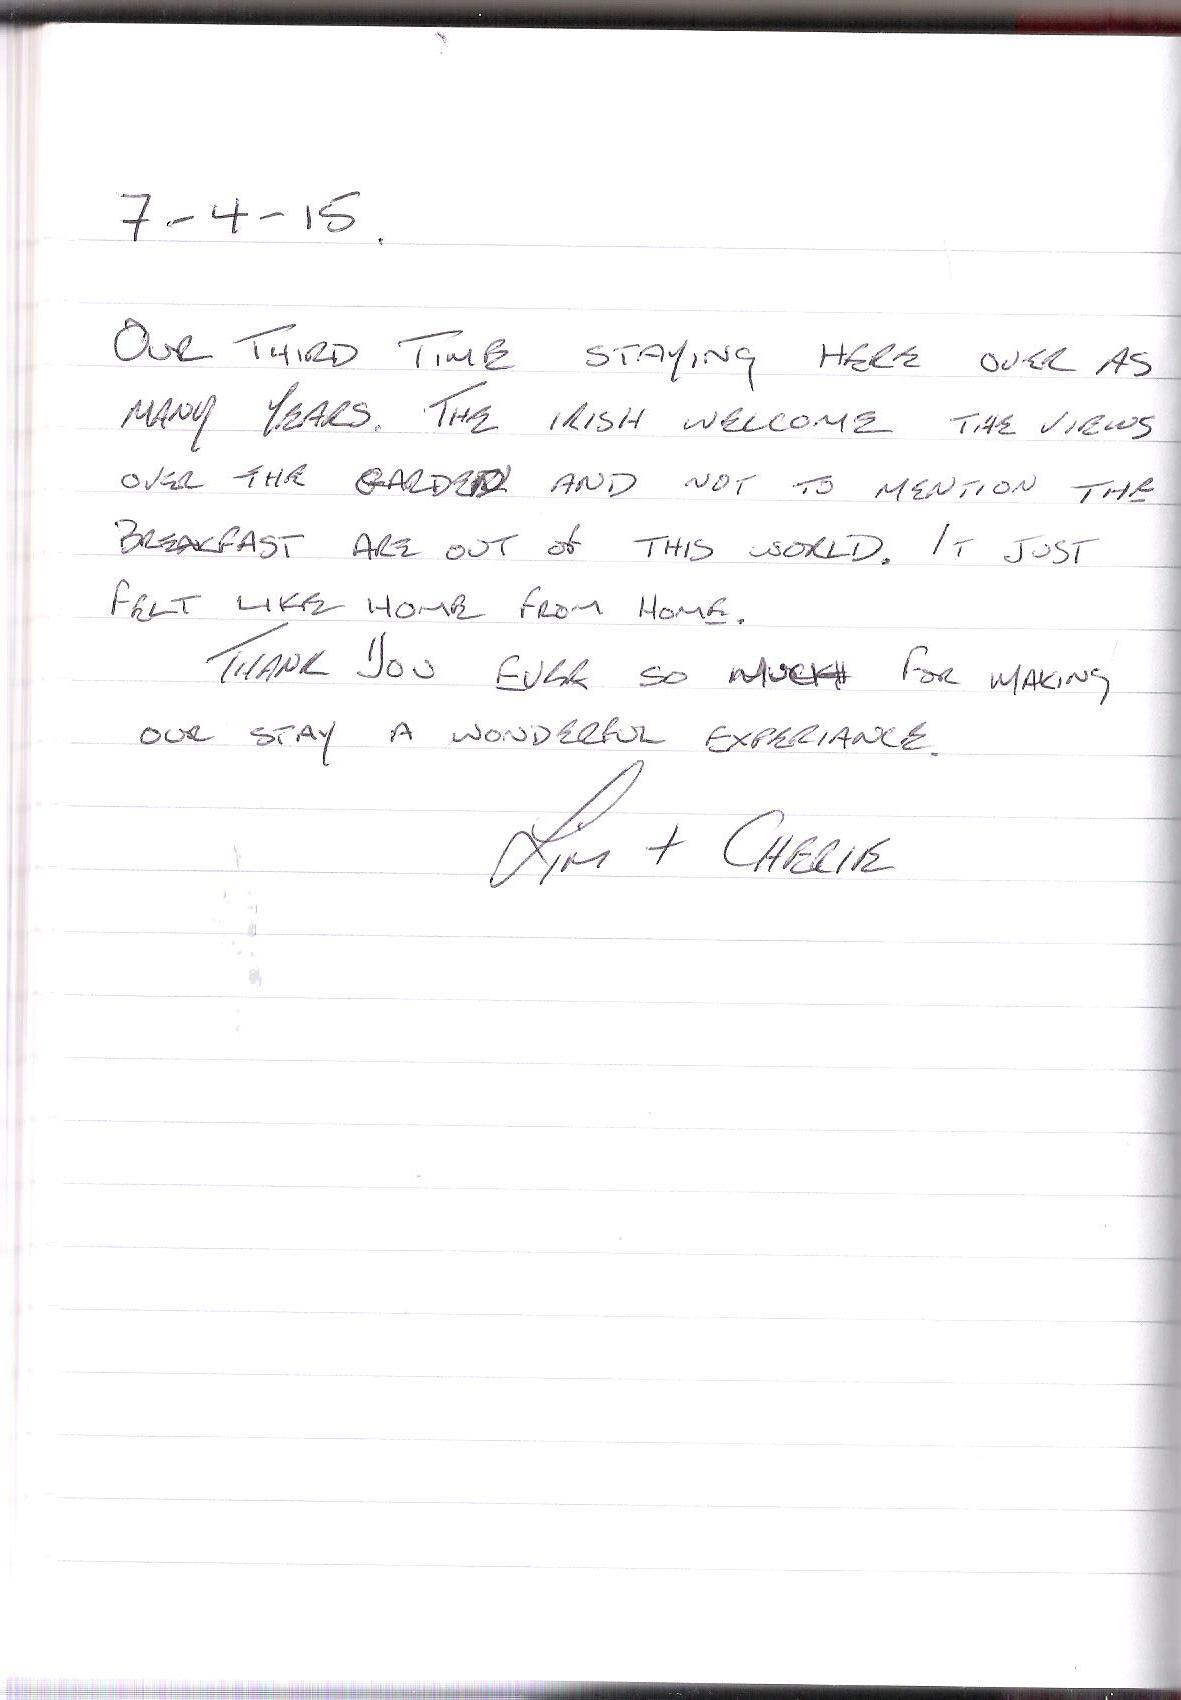 7-4-15.
OUR THIRD TIME STAYING HERE OVER AS
MANY YEARS. THE IRISH WELCOME THE VIEWS
OVER THE GARDEN AND NOT TO MENTION THE
BREAKFAST ARE OUT OF THIS WORLD. IT JUST
FELT LIKE HOME FROM HOME.
THANK YOU EVER SO MUCH FOR MAKING
OUR STAY A WONDERFUL EXPERIANCE.
+ CHERIE